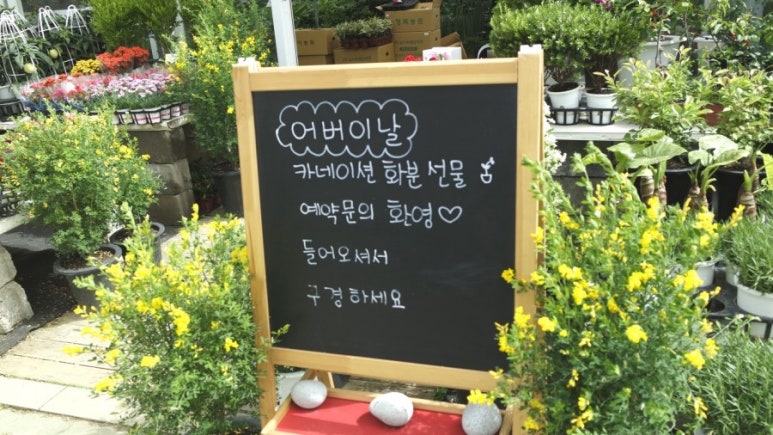 어버이날
카네이션 화분 선물
예약문의 환영♡
들어오셔서
구경하세요